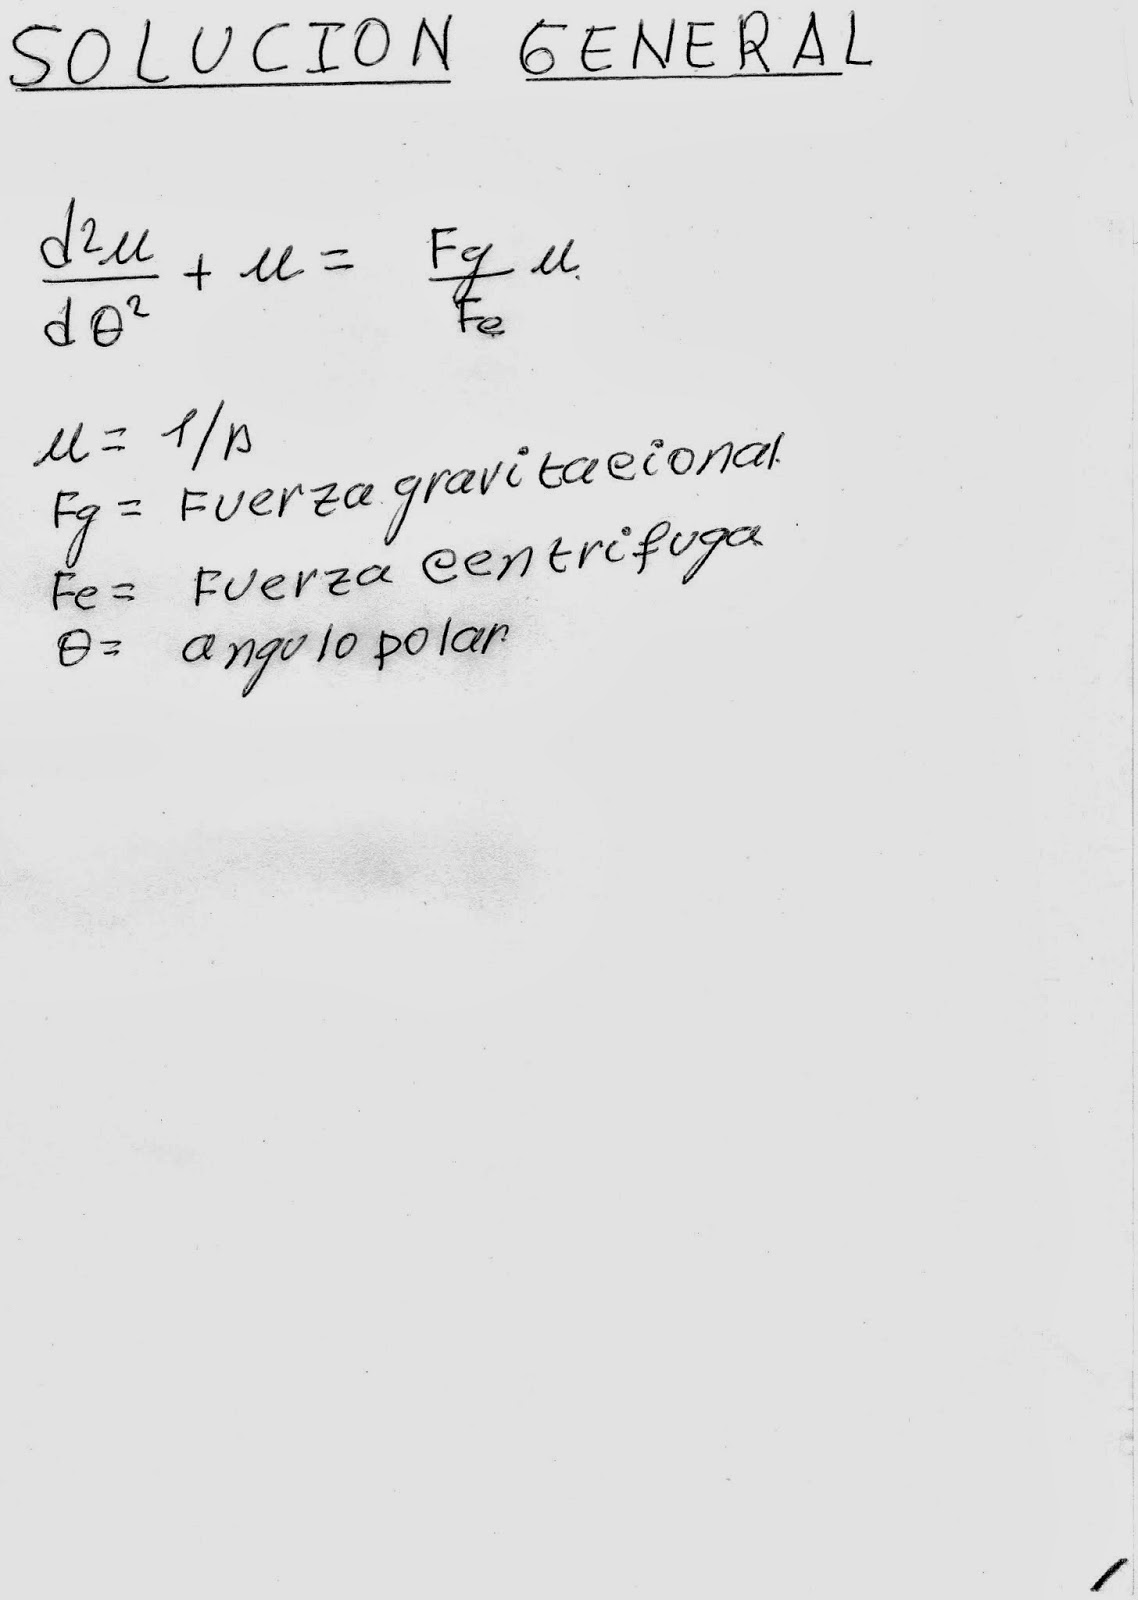 SOLUCION GENERAL
d²u/dθ² + u = Fg/Fc u.
u = 1/r
Fg = Fuerza gravitacional.
Fc = Fuerza centrifuga
θ = angulo polar.